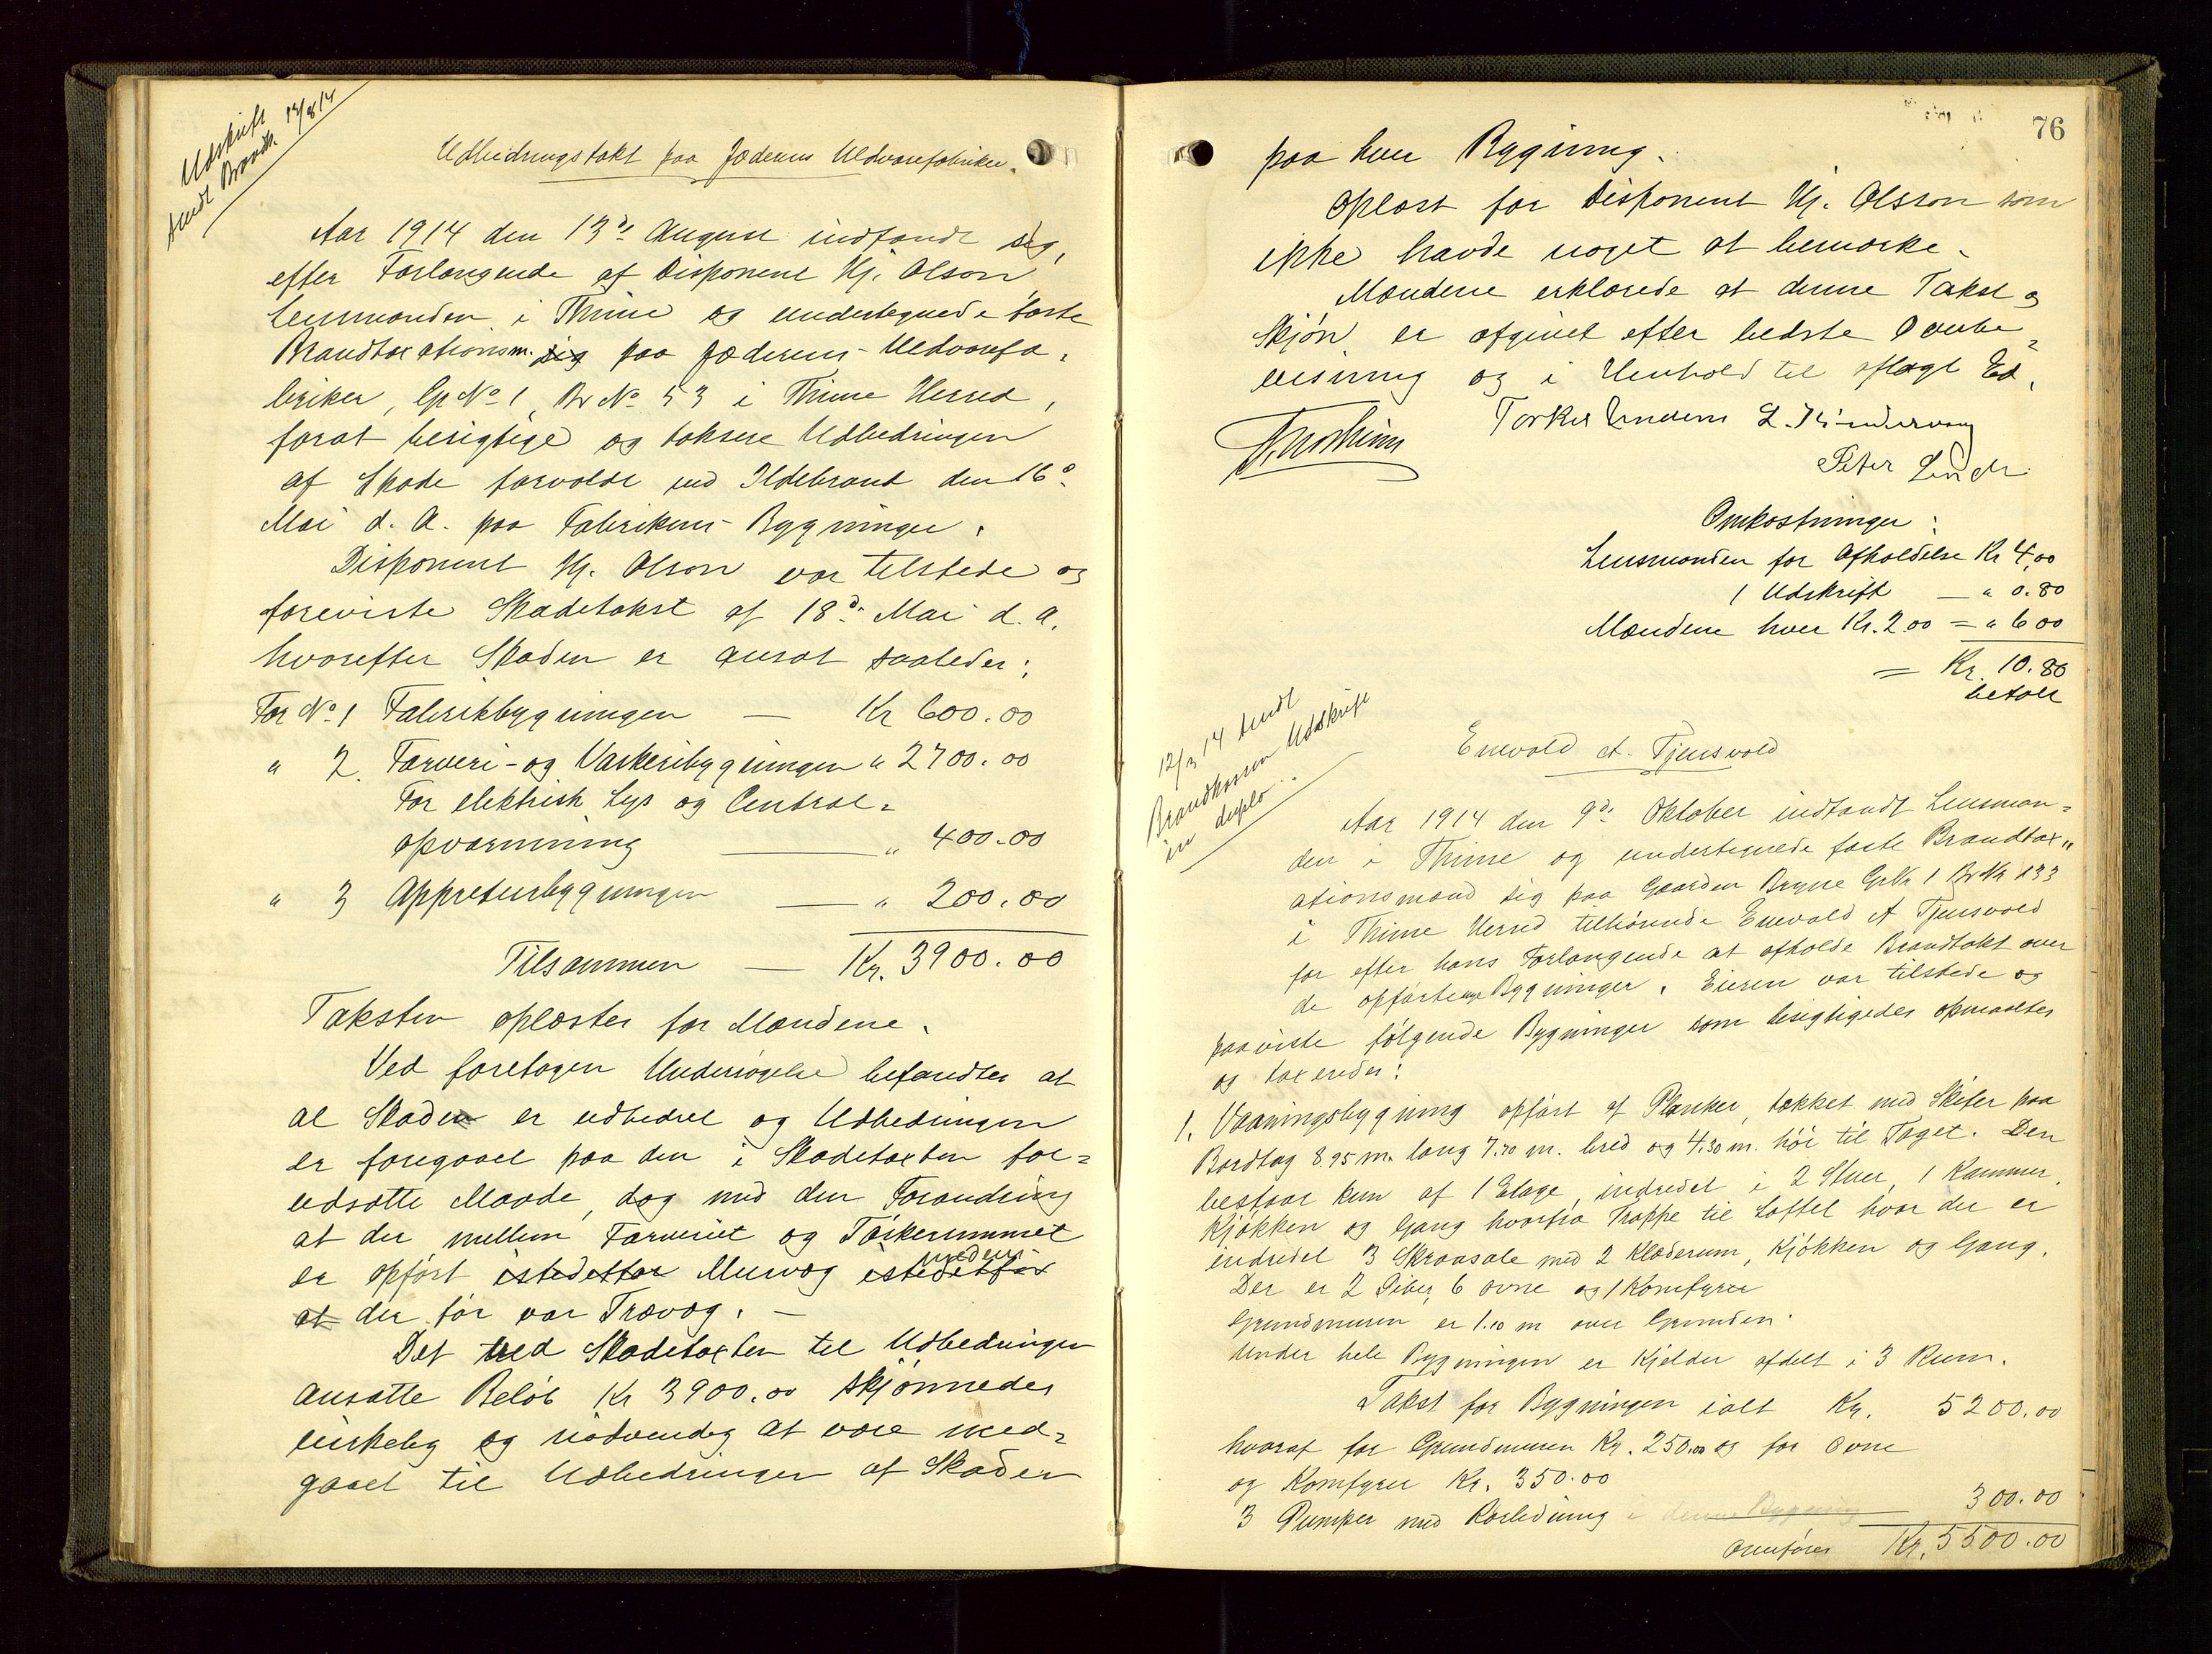 Udskrift
sendt Brandk. 14/8 14
Udbedringstakst paa Jæderens Uldvarefabriker.
Aar 1914 den 13d. August indfandt sig,
efter Forlangende af Disponent Hj. Olson,
Lensmanden i Thime og undertegnede faste
Brandtaxationsm. sig paa Jæderens Uldvarefa-
briker, Gr No 1, Br No 53 i Thime Herred,
forat besigtige og taksere Udbedringen
af Skade forvoldt ved Ildebrand den 16d.
Mai d. A. paa Fabrikens Bygninger.
Disponent Hj. Olson var tilstede og
foreviste Skadetakst af 18d. Mai d. A.
hvorefter Skaden er ansat saaledes:
For No. 1 Fabrikbygningen — Kr 600.00
" 2. Farveri- og Vaskeribygningen " 2700.00
For elektrisk Lys og Central-
opvarmning — " 400.00
" 3 Appreturbygningen — " 200.00
Tilsammen — Kr. 3900.00
Taksten oplæstes for Mændene.
Ved foretagen Undersøgelse befandtes at
al Skaden er udbedret og Udbedringen
er foregaaet paa den i Skadetaxten for-
udsatte Maade, dog med den Forandring
at der mellem Farveriet og Tørkerummet
er opført istedetfor Murvæg istedetfor
medens
at der før var Trævæg. —
Det ved Skadetaxten til Udbedringen
ansatte Beløb Kr 3900.00 skjønnedes
virkelig og nødvendig at være med-
gaaet til Udbedringen af Skaden
76
paa hver Bygning.
Oplæst for Disponent Hj. Olsson som
ikke havde noget at bemærke.
Mændene erklærede at denne Takst og
Skjøn er afgivet efter bedste Overbe-
visning og i Henhold til aflagt Ed.
Torkel L.
Peter Lende
Omkostninger:
Lensmanden for Afholdelse Kr 4,00
1 Udskrift — " 0.80
Mændene hver Kr. 2.00 = " 6 00
= Kr. 10.80
betalt
12/3 14 sendt
Brandkassen Udskrift
in duplo
Enevald A. Tjensvold
Aar 1914 den 9d. Oktober indfandt Lensman-
den i Thime og undertegnede faste Brandtax-
ationsmænd sig paa Gaarden Bryne GrNr 1 BrNr 133
i Thime Herred tilhørende Enevald A Tjensvold
for efter hans Forlangende at afholde Brandtakst over
de opførte nye Bygninger. Eieren var tilstede og
paaviste følgende Bygninger som besigtigedes opmaaltes
og taxeredes:
1. Vaaningsbygning opført af Planker, tækket med Skifer paa
Bordtag 8.95 m. lang 7.70 m. bred og 4.30 m. høi til Taget. Den
bestaar kun af 1 Etage, indredet i 2 Stuer, 1 Kammer,
Kjøkken og Gang hvorfra Trappe til Loftet hvor der er
indredet 3 Skraasale med 2 Klæderum, Kjøkken og Gang.
Der er 2 Piber, 6 ovne og 1 Komfyrer
Grundmuren er 1.10 m over Grunden.
Under hele Bygningen er Kjelder afdelt i 3 Rum.
Takst for Bygningen ialt Kr. 5200.00
hvoraf for Grundmuren Kr. 250.00 og for Ovne
og Komfyrer Kr. 350.00
3 Pumper med Rørledning i denne Bygning 300.00
Overføres Kr. 5500.00